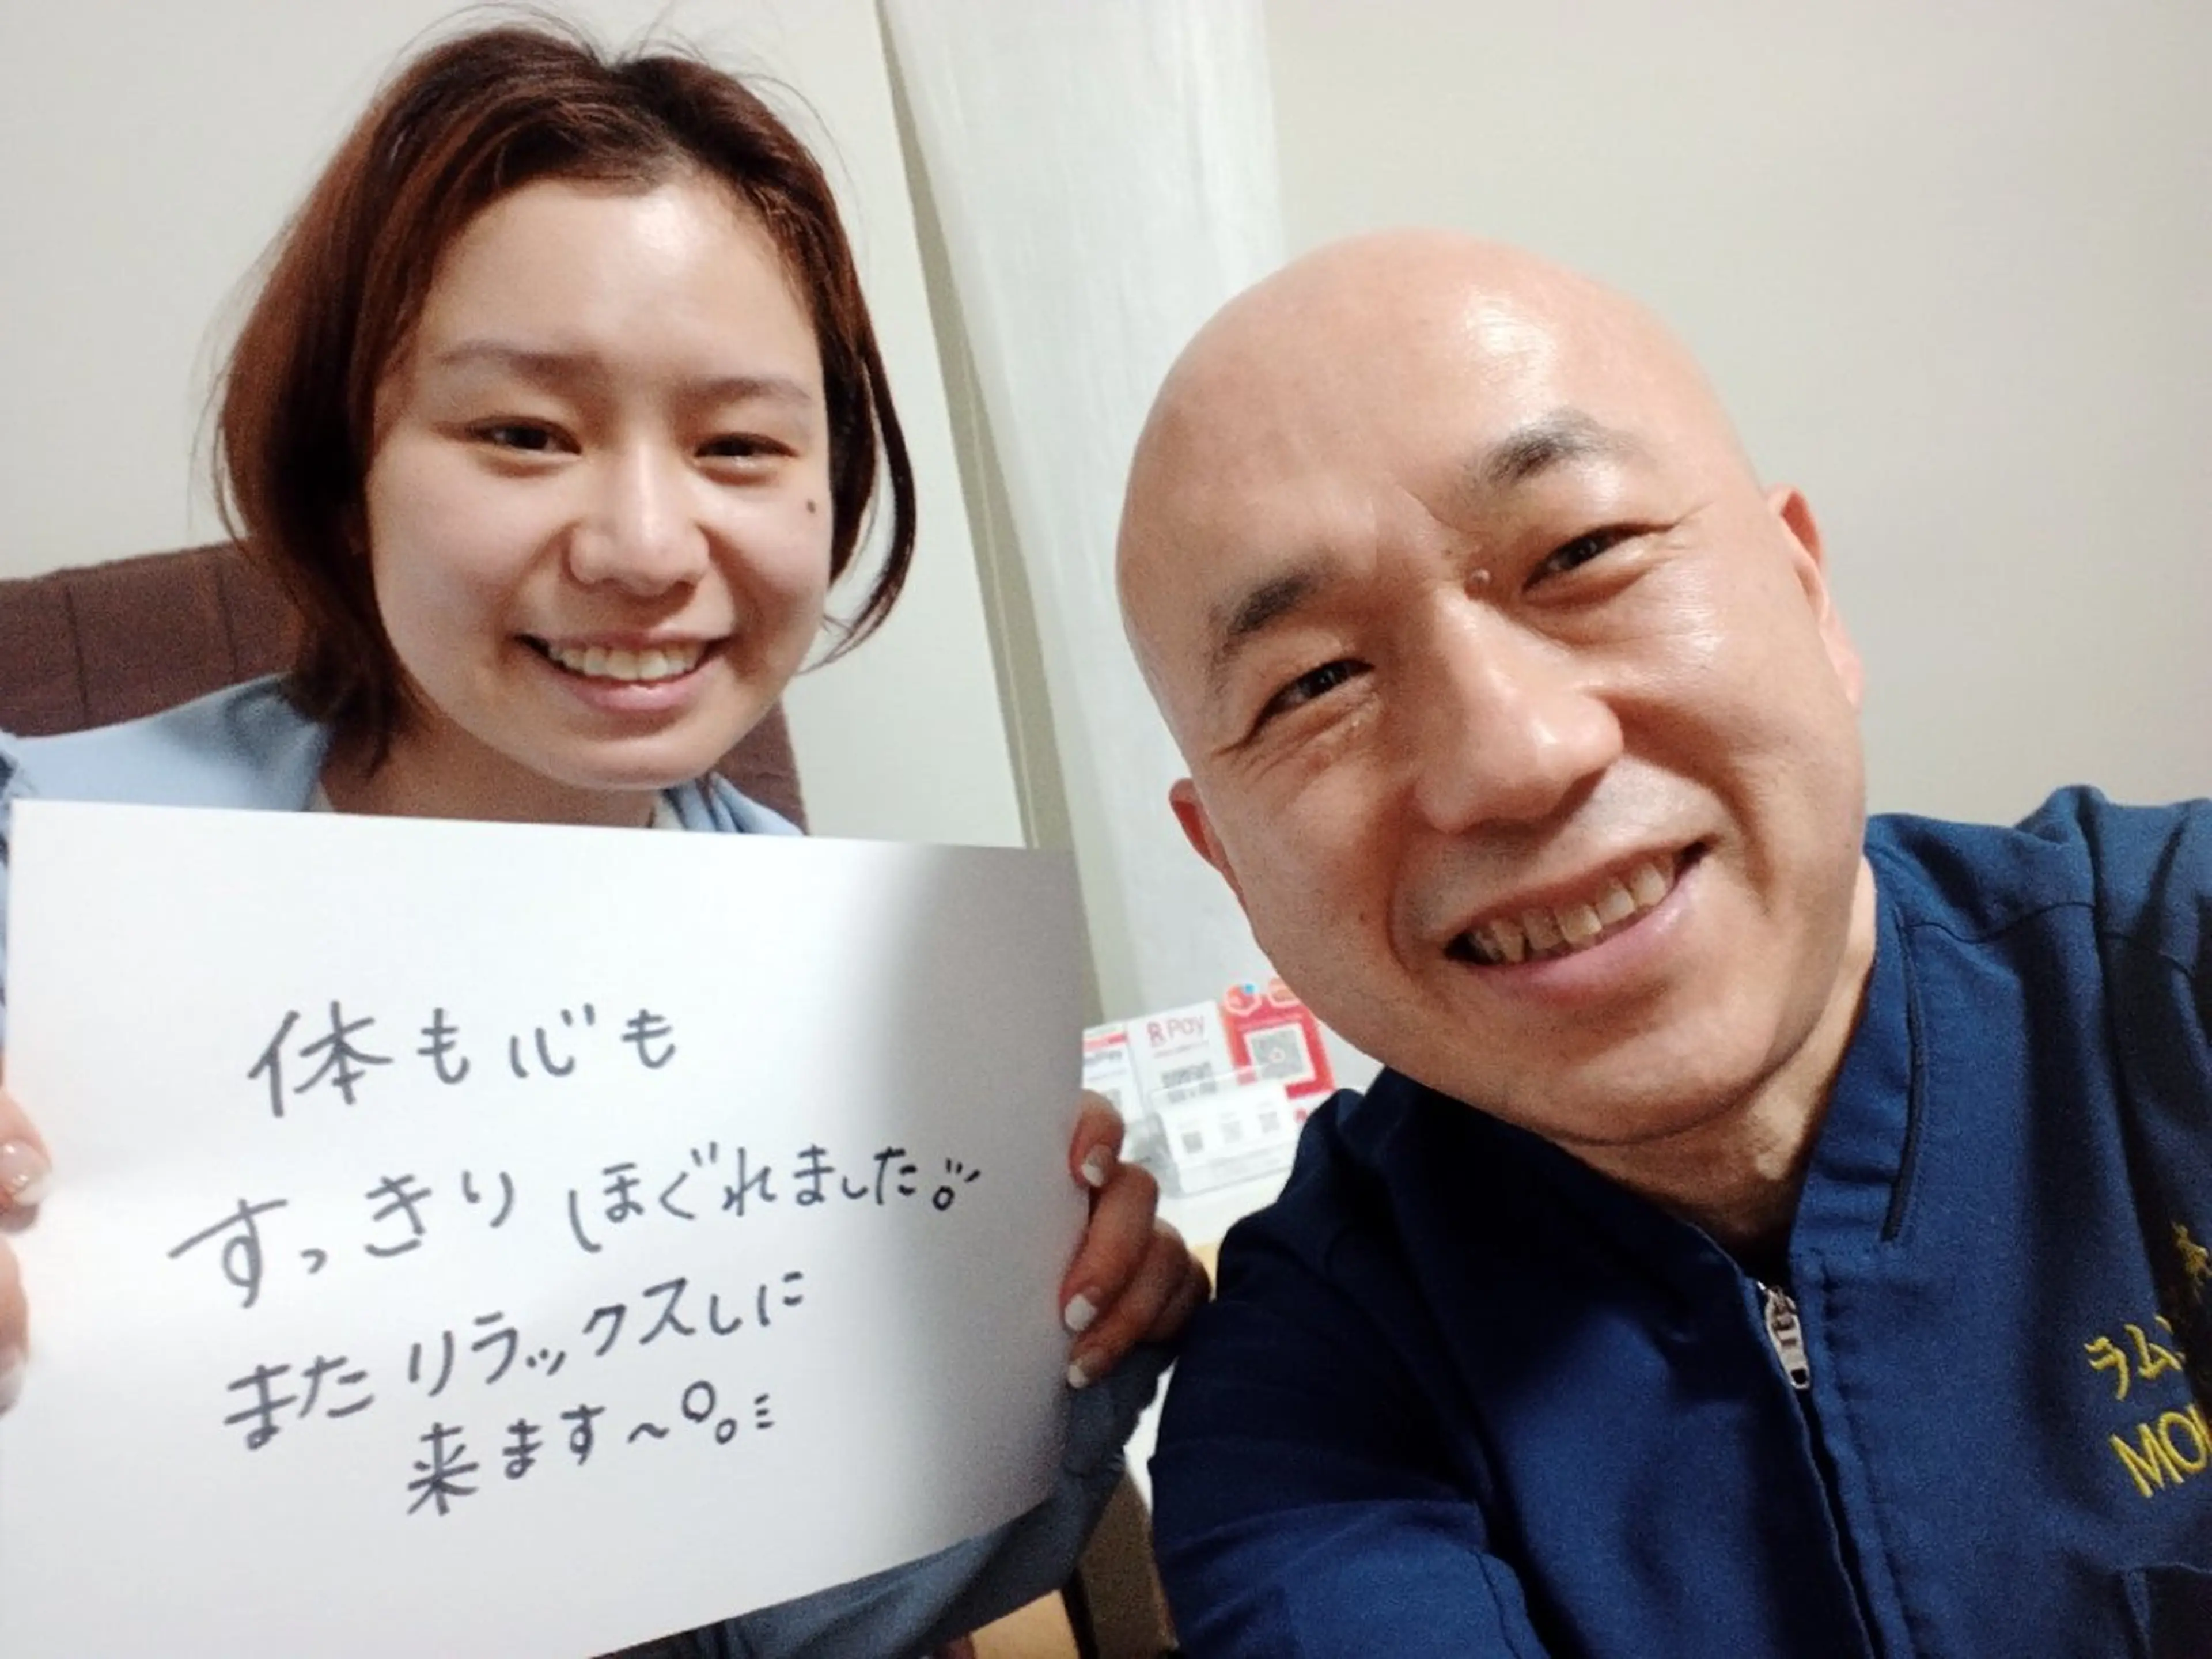 体も心も
すっきりほぐれました。
またリラックスしに
来ます〜。
R Pay
ラム
MO